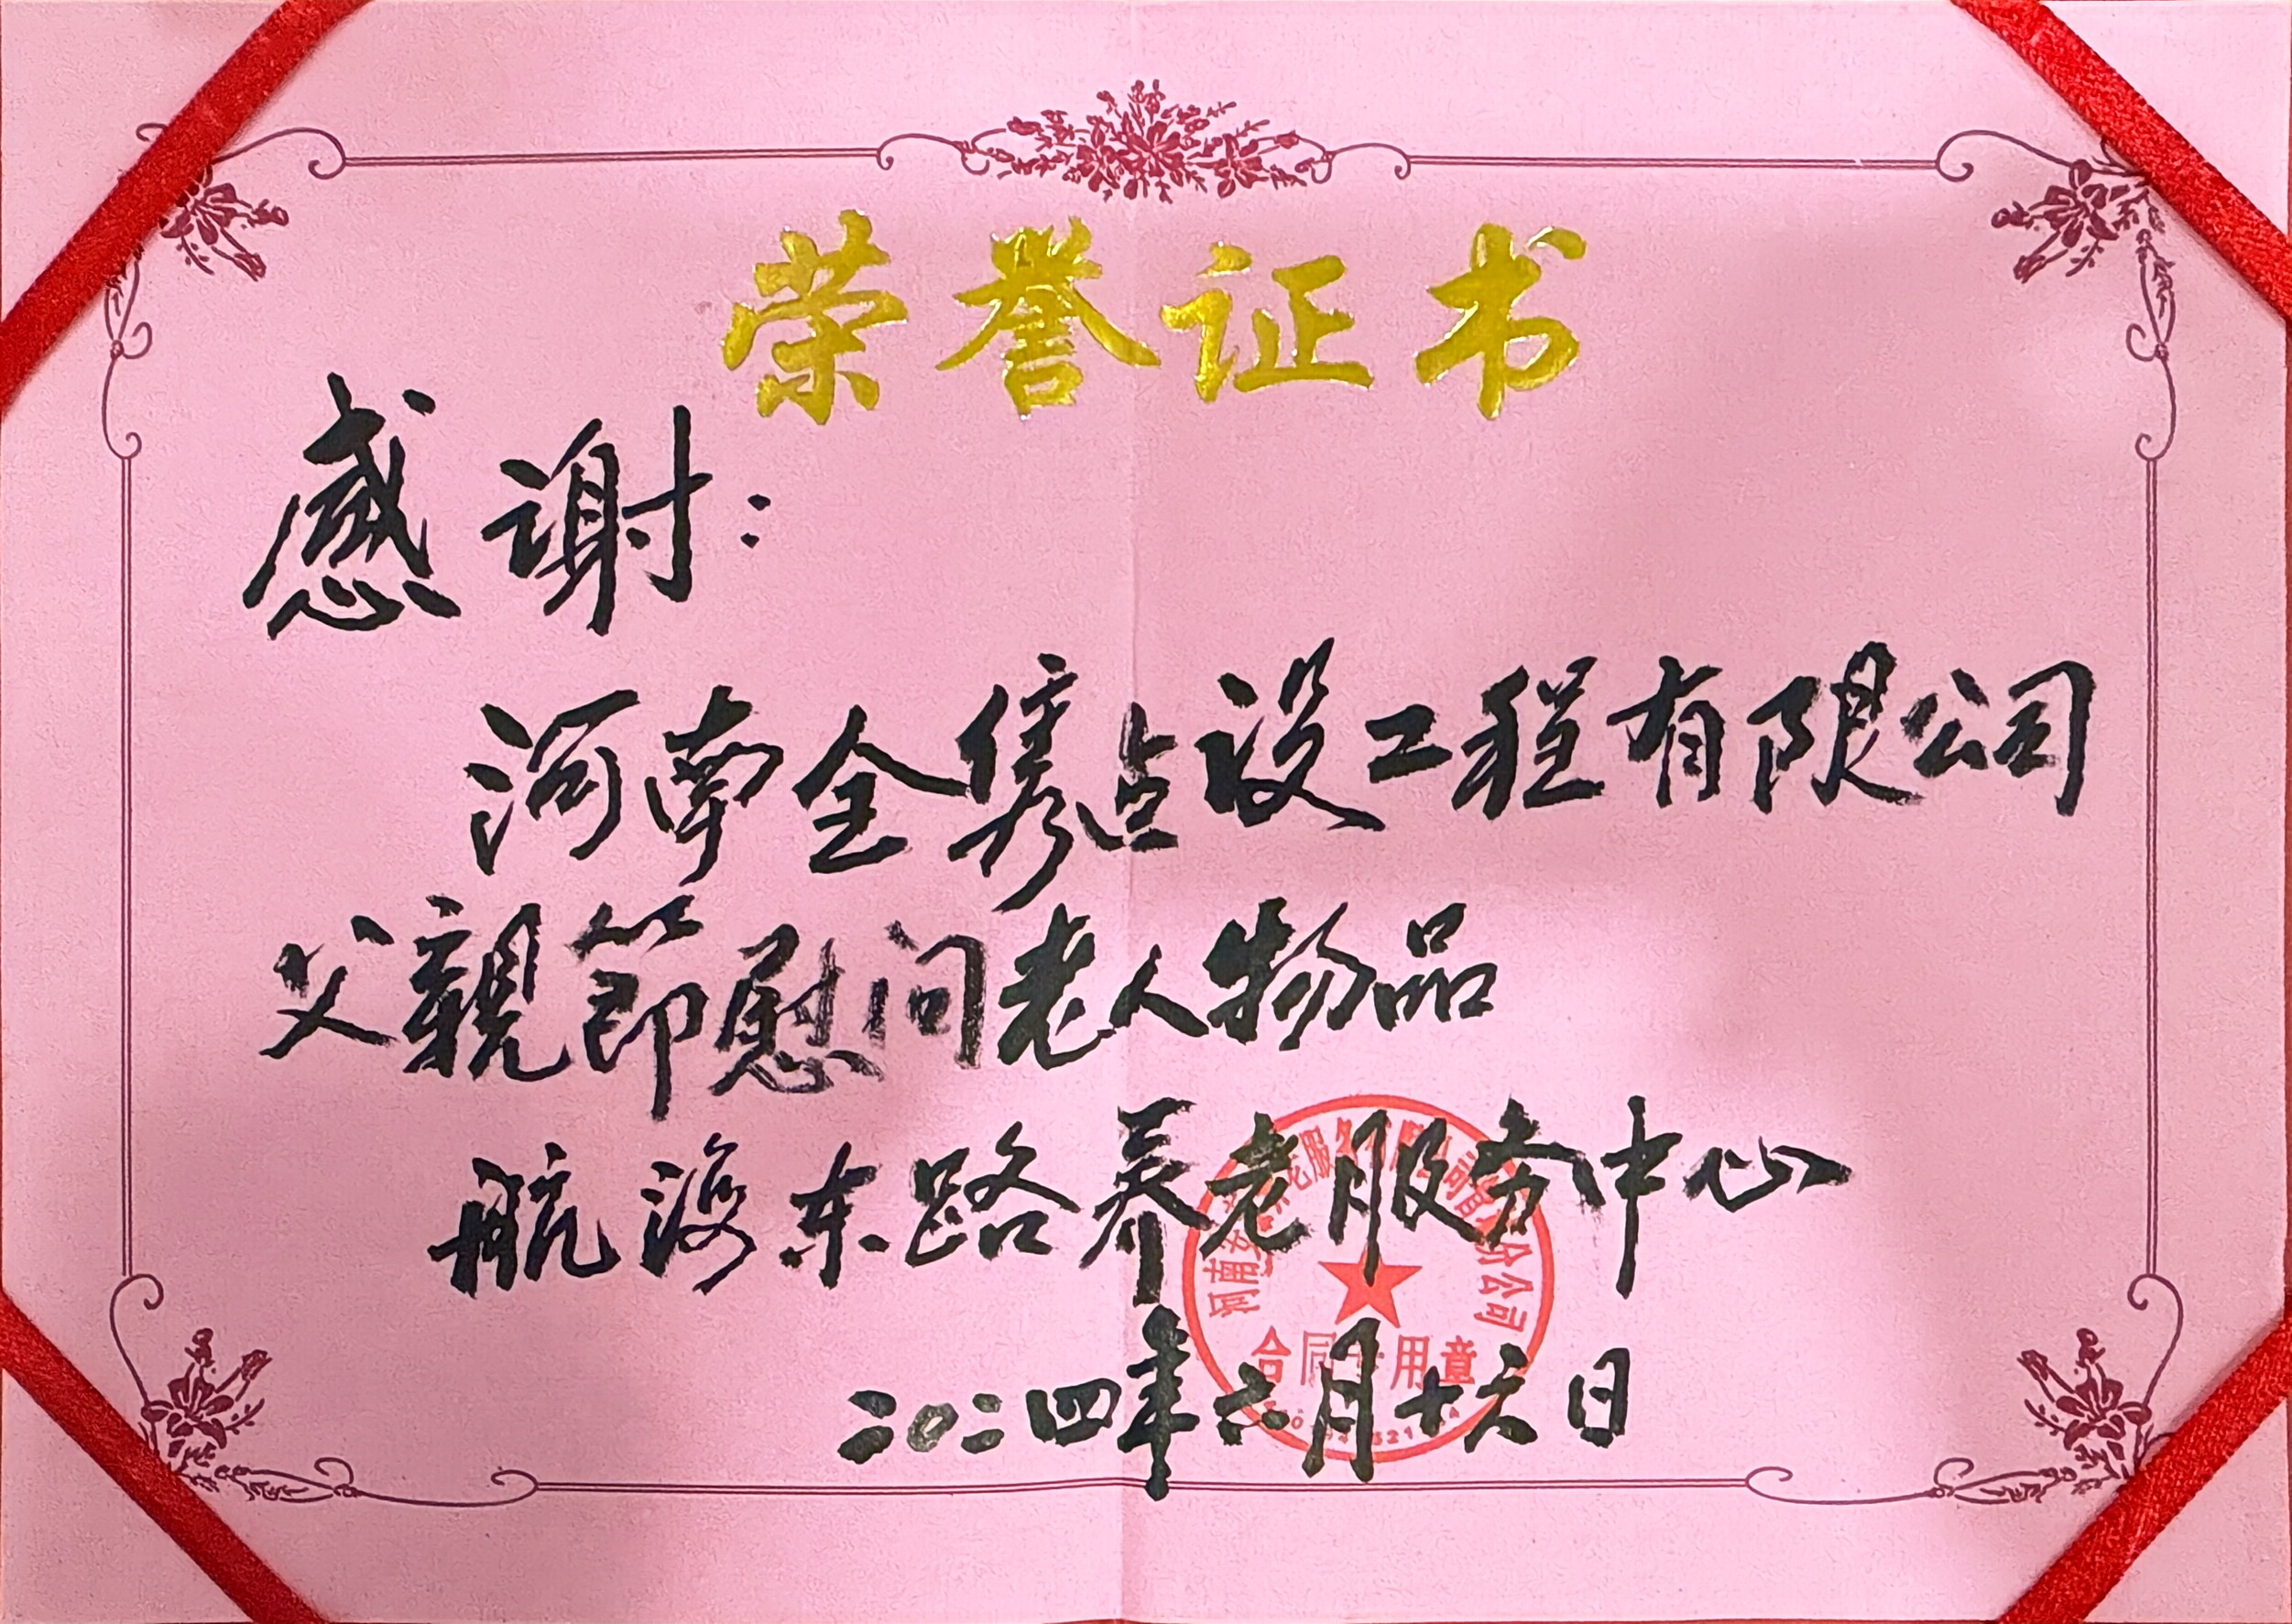 荣誉证书
感谢：
河南全隽占设工程有限公司
父親節慰问老人物品
航海东路养老服务中心
二〇二四年六月十六日
合同专用章